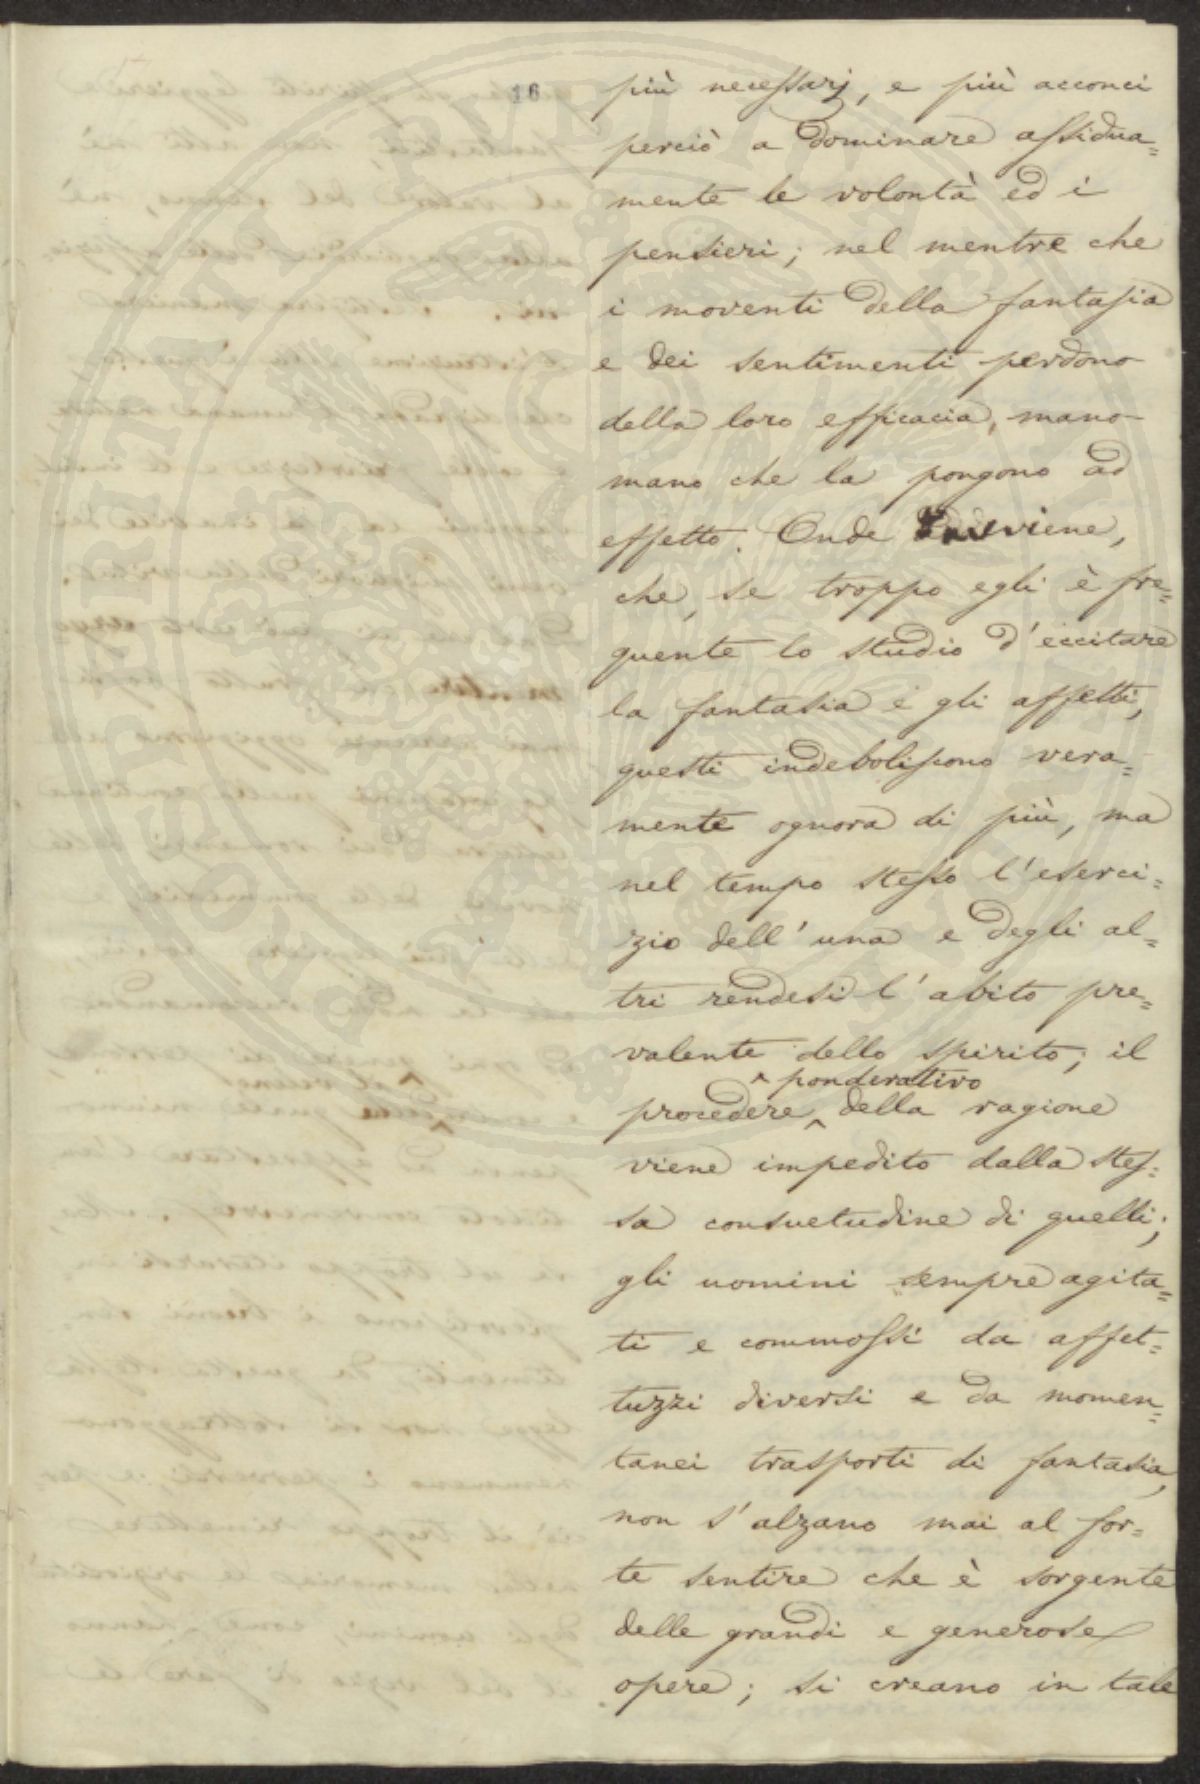 16
più necessarj, e più acconci
perciò a dominare assidua=
mente le volontà ed i
pensieri; nel mentre che
i moventi della fantasia
e dei sentimenti perdono
della loro efficacia, mano
mano che la pongono ad
effetto. Onde viene,
che, se troppo egli è fre=
quente lo studio d'eccitare
la fantasia e gli affetti,
questi indeboliscono vera=
mente ognora di più, ma
nel tempo stesso l'eserci=
zio dell'una e degli al=
tri rendesi l'abito pre=
valente dello spirito; il
^ ponderativo
procedere ^ della ragione
viene impedito dalla stes=
sa consuetudine di quelli;
gli uomini sempre agita=
ti e commossi da affet=
tuzzi diversi e da momen=
tanei trasporti di fantasia,
non s'alzano mai al for=
te sentire che è sorgente
delle grandi e generose
opere; si creano in tale